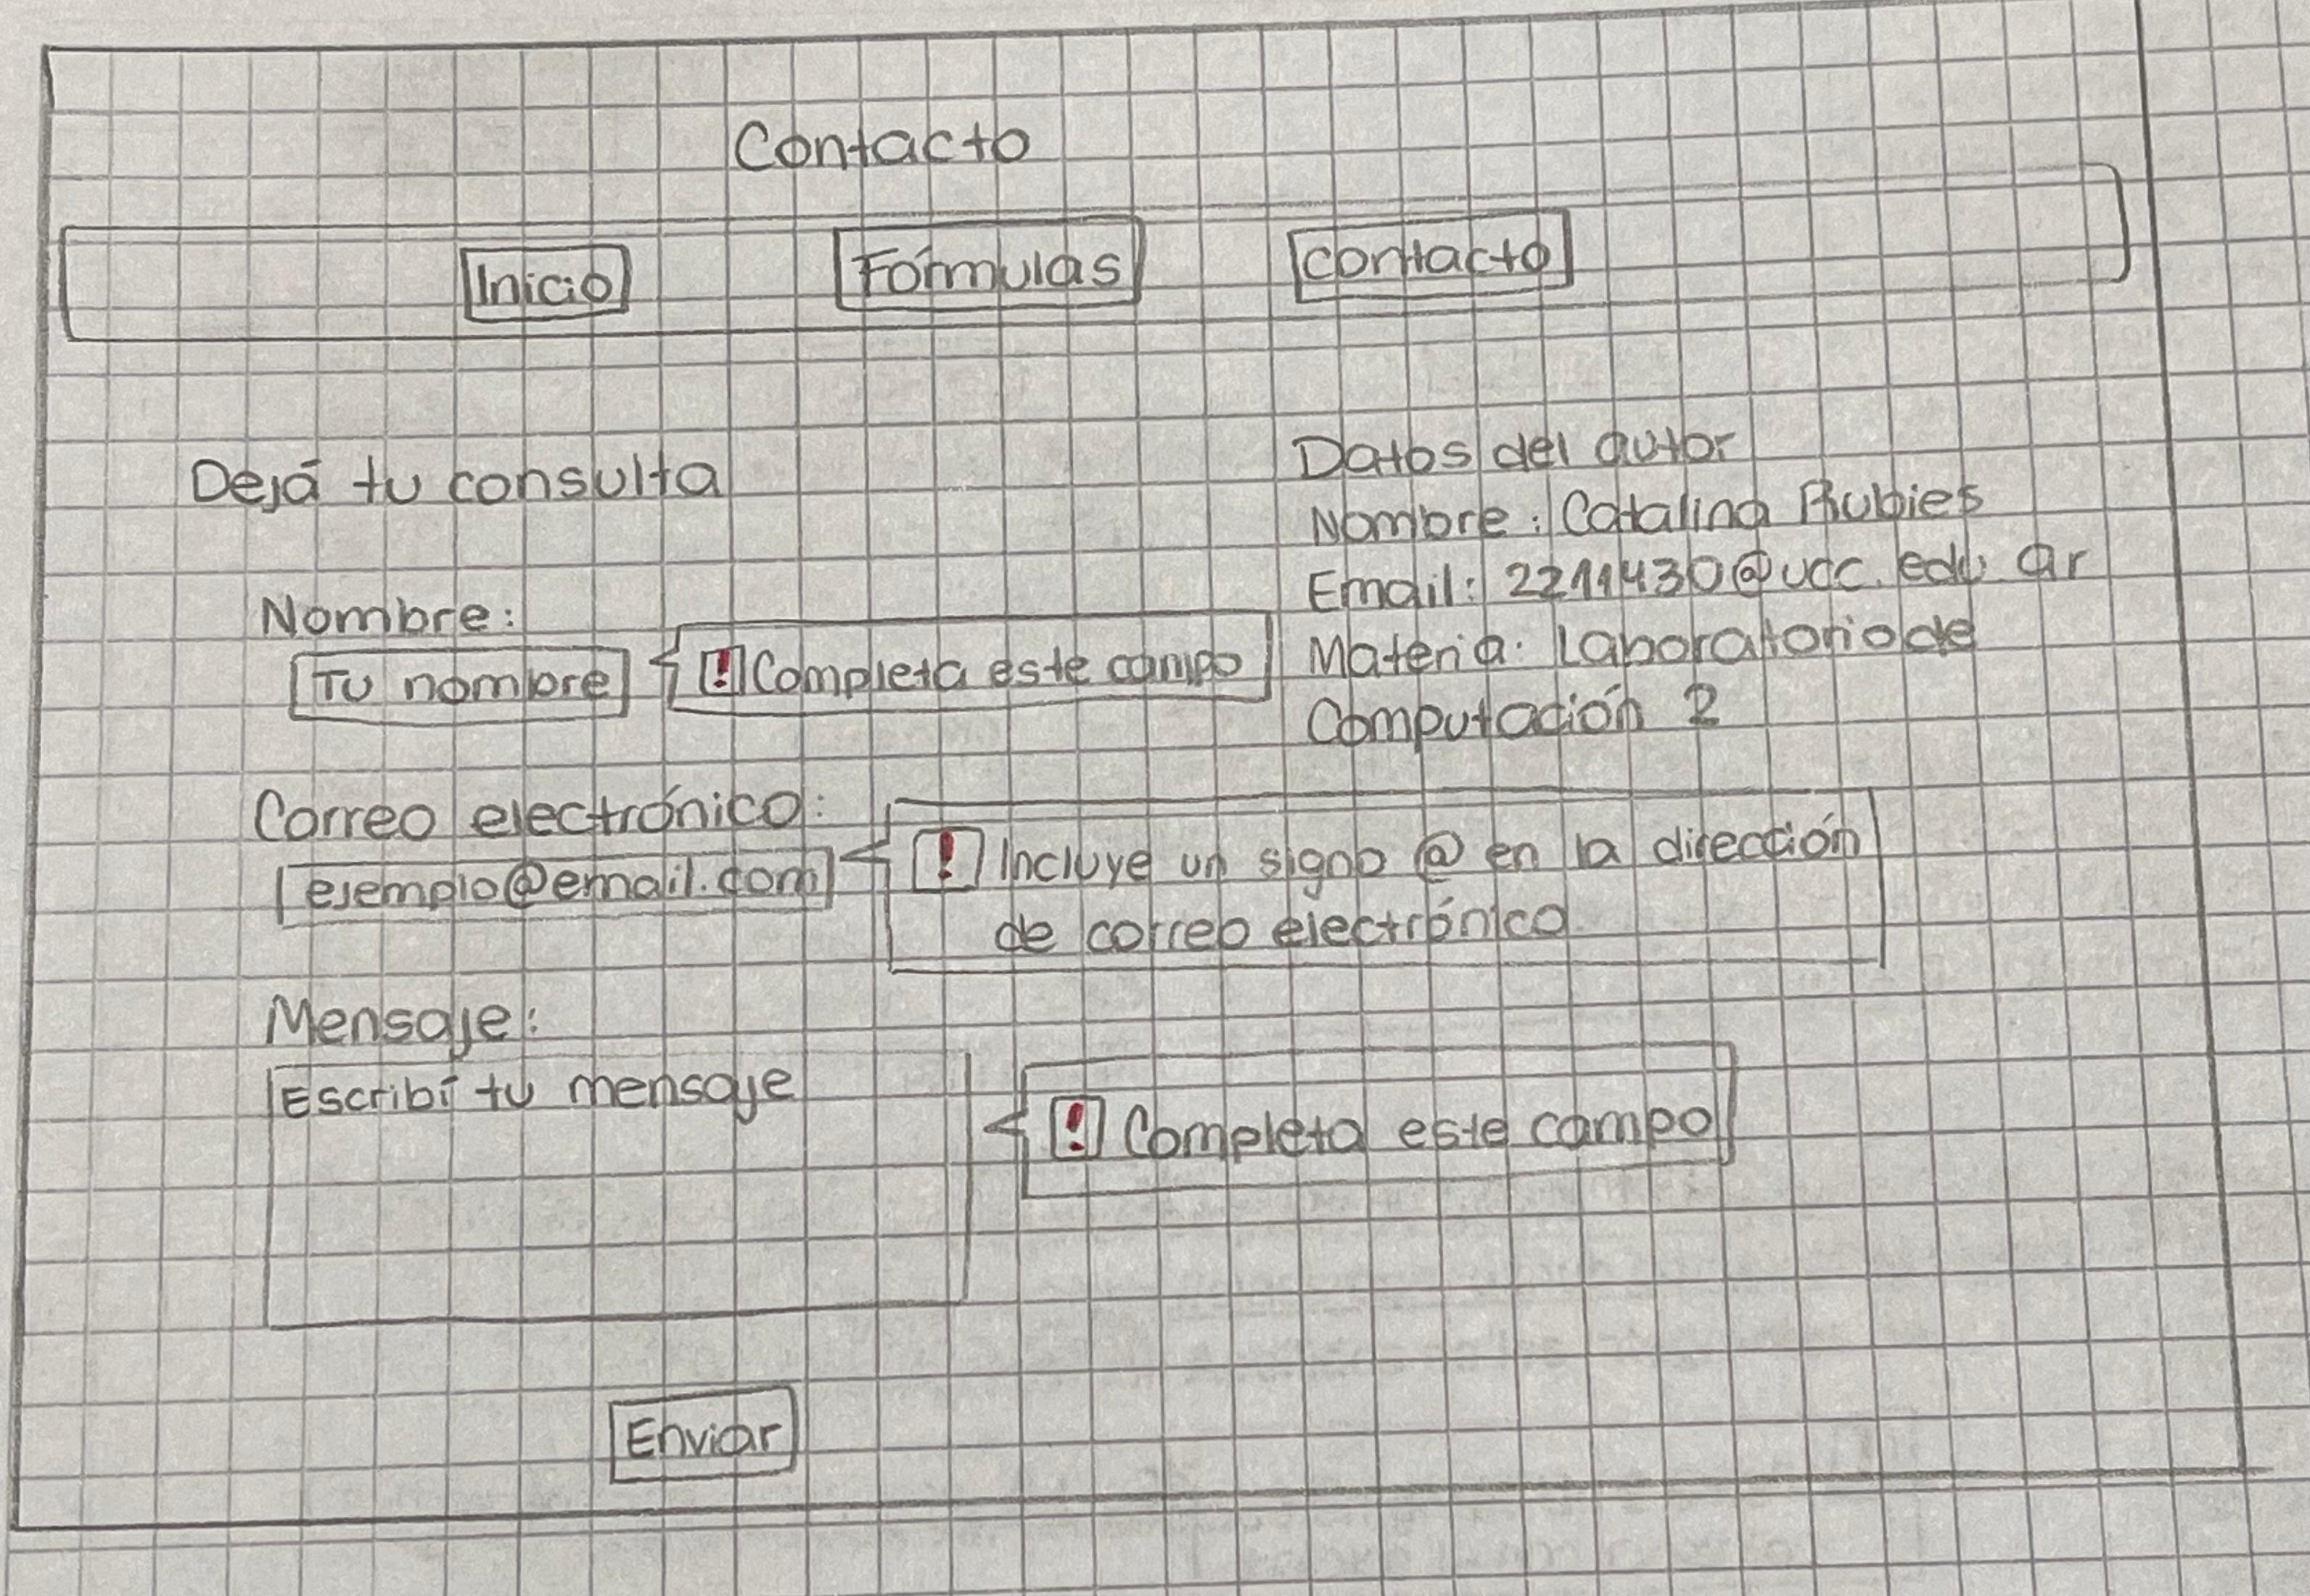 Contacto
Inicio
Fórmulas
contacto
Dejá tu consulta
Nombre:
Tu nombre
! Completa este campo
Correo electrónico:
ejemplo@email.com
! Incluye un signo @ en la dirección
de correo electrónico
Mensaje:
Escribí tu mensaje
! Completa este campo
Enviar
Datos del autor
Nombre: Catalina Rubies
Email: 2211430@ucc.edu.ar
Materia: Laboratorio de
Computación 2